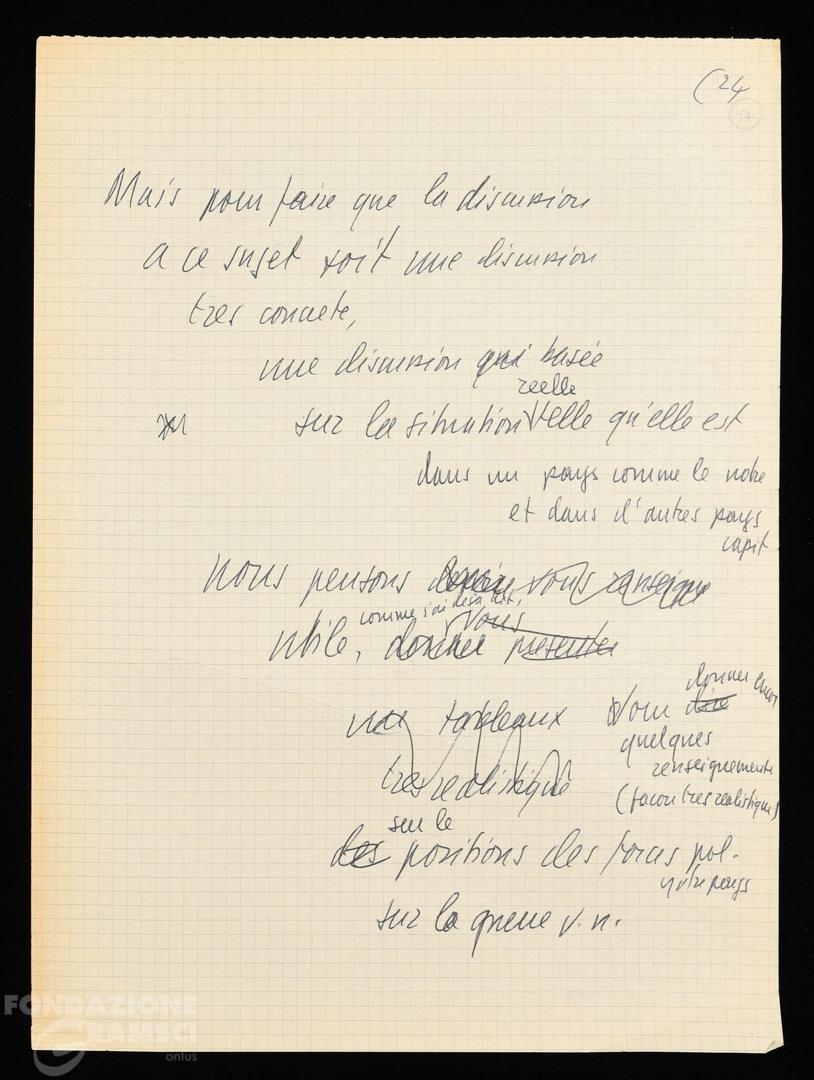 (24
Mais pour faire que la discussion
a ce sujet soit une discussion
tres concrete,
une discussion qui basée
reelle
sur la situation telle qu'elle est
dans un pays comme le notre
et dans d'autres pays
capit
nous pensons vous renseigne
comme j'ai deja dit,
vous
utile, donner presenter
donner encor
tableaux vous dire
quelques
renseignements
tres realistique
(facon tres realistique)
sur le
des positions des forces pol.
notre pays
sur la guerre v.n.
FONDAZIONE
GRAMSCI
onlus